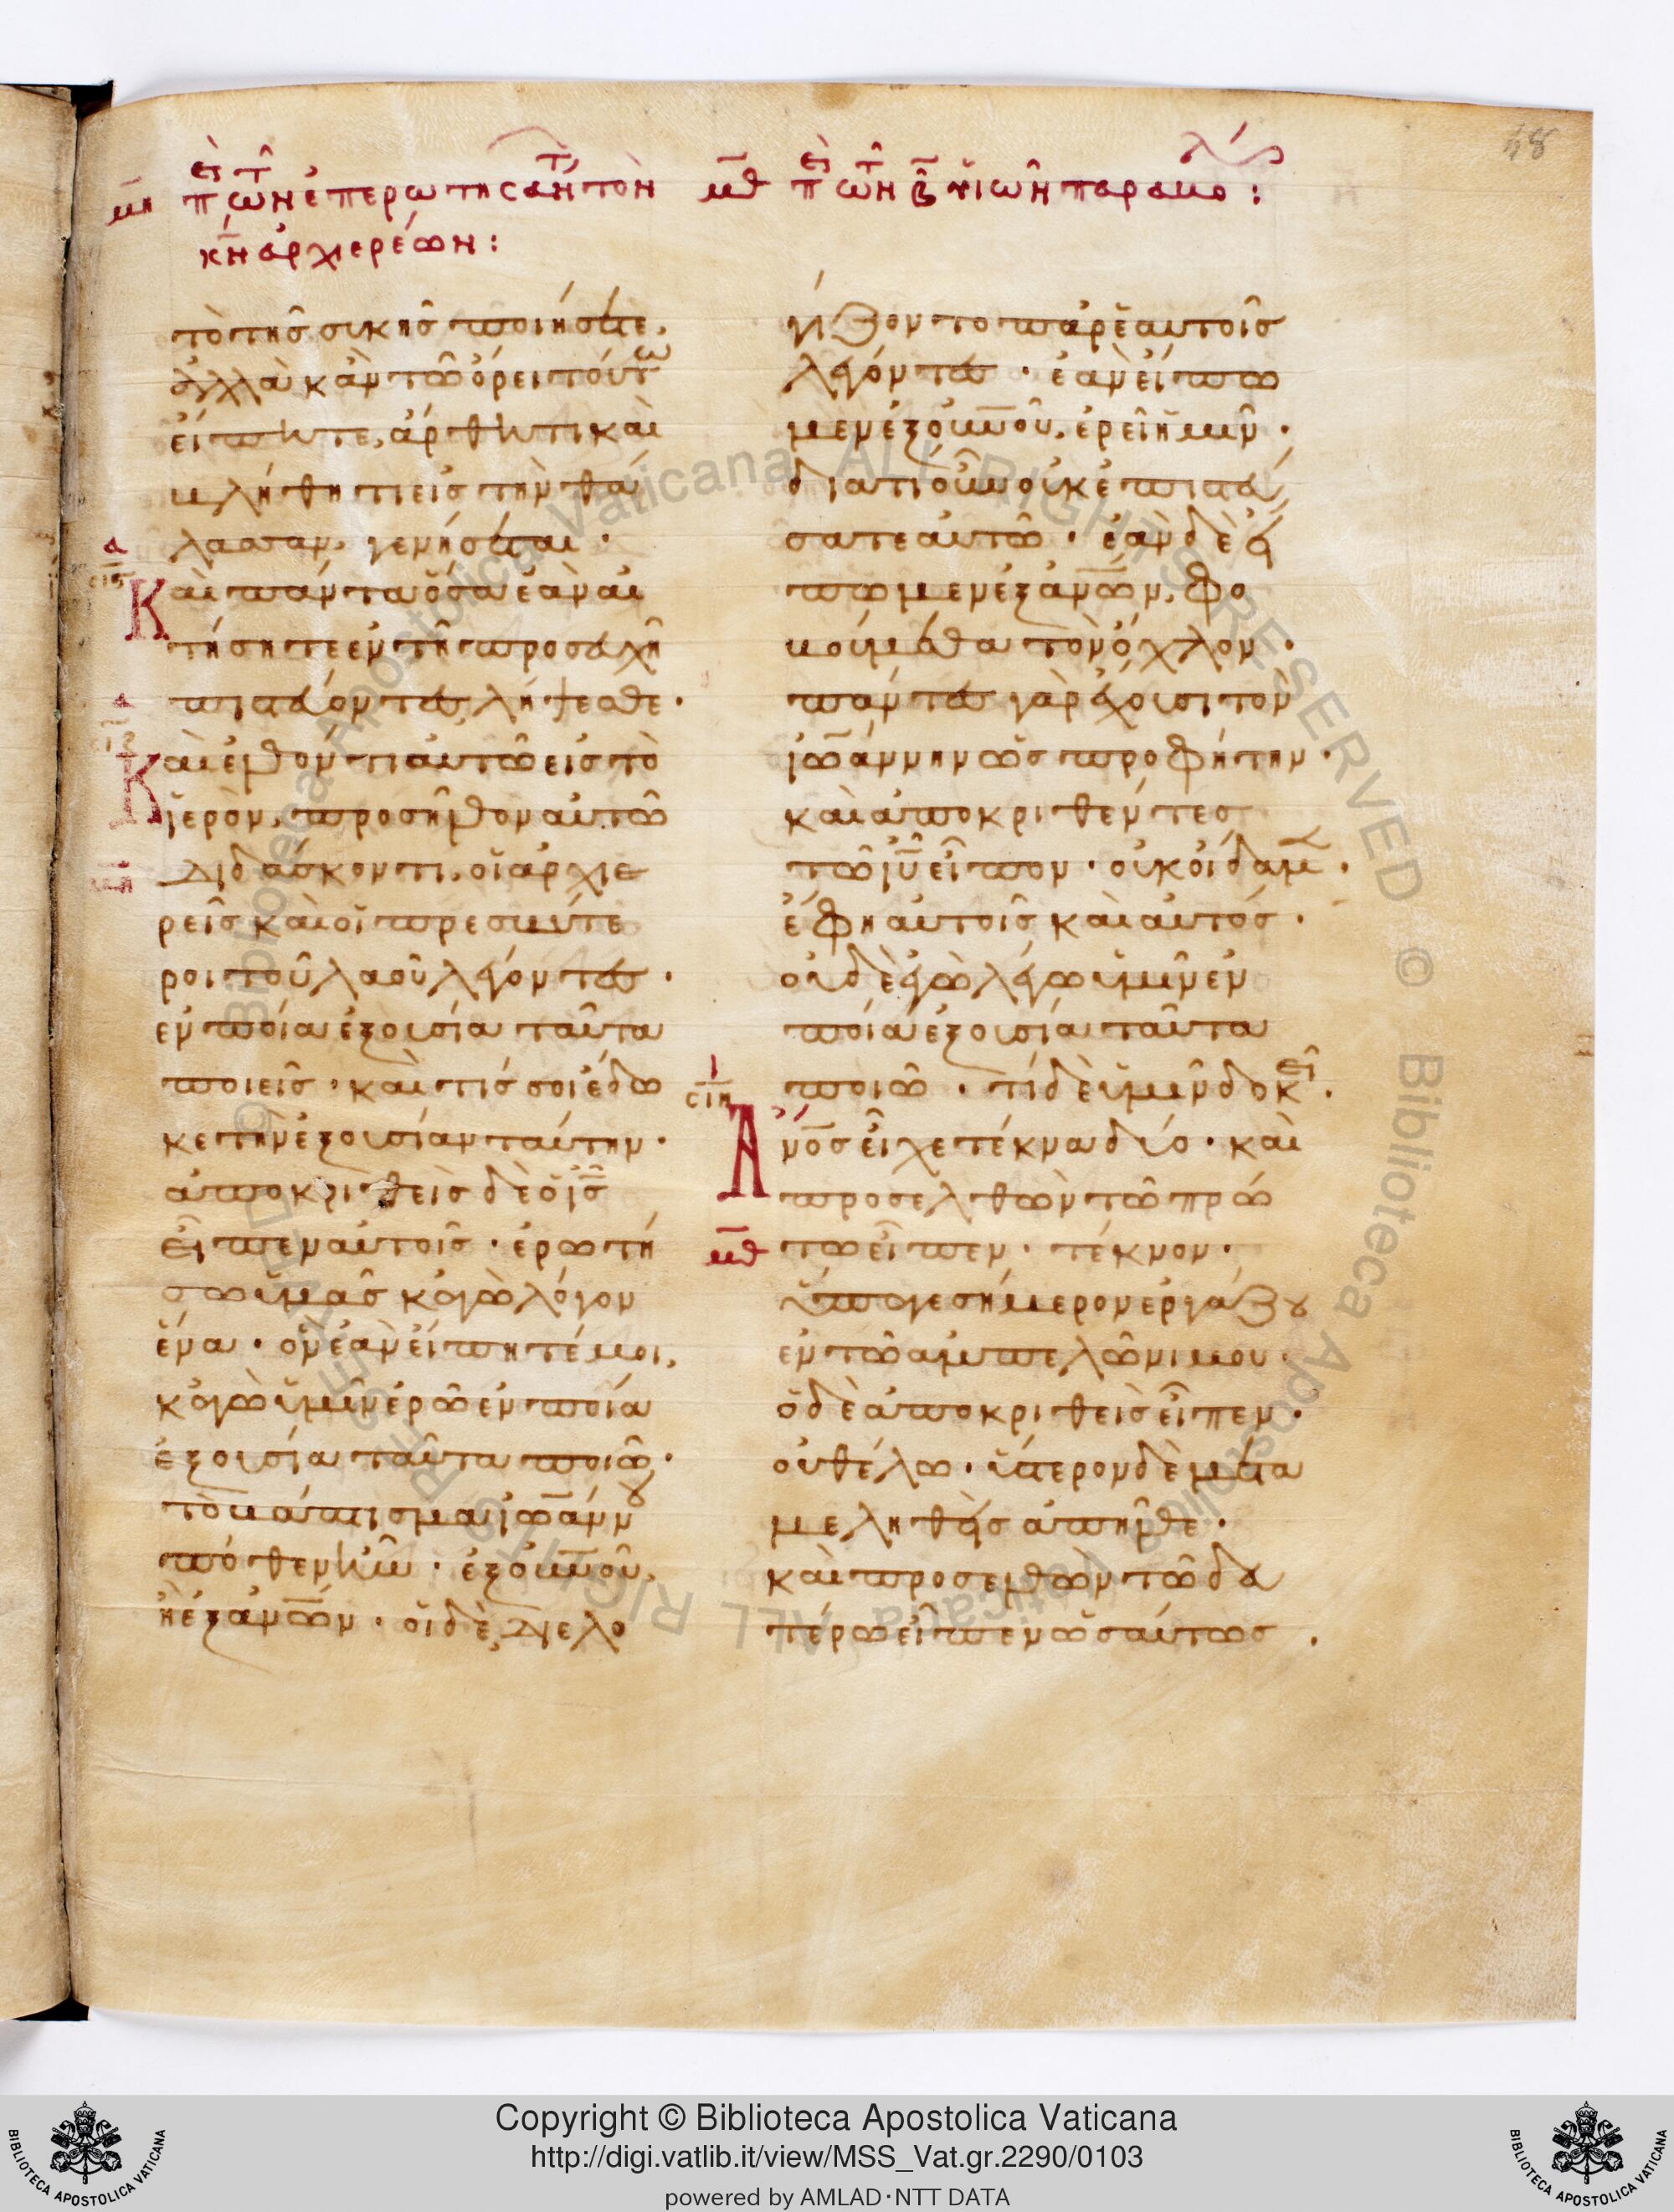 48
μη περὶ τῶν ἐπερωτησάντων τὸν
κ̅ν̅ ἀρχιερέων:
μθ περὶ τῶν β̅ υἱῶν παραβολή:
τὸ τῆς συκῆς ποιήσετε,
ἀλλὰ κἂν τῶ ὄρει τούτω
εἴπητε, ἄρθητι καὶ
βλήθητι εἰς τὴν θά
λασσαν, γενήσεται·
Καὶ πάντα ὅσα ἐὰν αἰ
τήσητε ἐν τῆ προσευχῆ
πιστεύοντες, λήψεσθε·
Καὶ ἐλθόντι αὐτῶ εἰς τὸ
ἱερὸν, προσῆλθον αὐτῶ
διδάσκοντι, οἱ ἀρχιε
ρεῖς καὶ οἱ πρεσβύτε
ροι τοῦ λαοῦ λέγοντες·
ἐν ποία ἐξουσία ταῦτα
ποιεῖς· καὶ τίς σοι ἔδω
κε τὴν ἐξουσίαν ταύτην·
ἀποκριθεὶς δὲ ὁ ι̅ς̅
εἶπεν αὐτοῖς· ἐρωτή
σω ὑμᾶς κἀγὼ λόγον
ἕνα· ὃν ἐὰν εἴπητέ μοι,
κἀγὼ ὑμῖν ἐρῶ ἐν ποία
ἐξουσία ταῦτα ποιῶ·
τὸ βάπτισμα ἰωάννου
πόθεν ἦν· ἐξ ο̅υ̅ν̅ο̅υ̅,
ἢ ἐξ α̅ν̅ω̅ν̅· οἱ δὲ διελο
γίζοντο παρ' ἑαυτοῖς
λέγοντες· ἐὰν εἴπω
μεν ἐξ ο̅υ̅ν̅ο̅υ̅, ἐρεῖ ἡμῖν·
διατί οὖν οὐκ ἐπιστεύ
σατε αὐτῶ· ἐὰν δὲ εἴ
πωμεν ἐξ α̅ν̅ω̅ν̅, φο
βούμεθα τὸν ὄχλον·
πάντες γὰρ ἔχουσι τὸν
ἰωάννην ὡς προφήτην·
καὶ ἀποκριθέντες
τῶ ι̅υ̅ εἶπον· οὐκ οἴδαμεν·
ἔφη αὐτοῖς καὶ αὐτός·
οὐδὲ ἐγὼ λέγω ὑμῖν ἐν
ποία ἐξουσία ταῦτα
ποιῶ· τί δὲ ὑμῖν δοκεῖ·
σιη
Α̅ν̅ο̅ς̅ εἶχε τέκνα δύο· καὶ
προσελθὼν τῶ πρώ
μθ τω εἶπεν· τέκνον·
ὕπαγε σήμερον ἐργάζου
ἐν τῶ ἀμπελῶνι μου·
ὁ δὲ ἀποκριθεὶς εἶπεν·
οὐ θέλω· ὕστερον δὲ μετα
μεληθεὶς ἀπῆλθε·
καὶ προσελθὼν τῶ δευ
τέρω εἶπεν ὡσαύτως·
Copyright © Biblioteca Apostolica Vaticana
http://digi.vatlib.it/view/MSS_Vat.gr.2290/0103
powered by AMLAD·NTT DATA
BIBLIOTECA APOSTOLICA VATICANA
BIBLIOTECA APOSTOLICA VATICANA
© Biblioteca Apostolica Vaticana ALL RIGHTS RESERVED
© Biblioteca Apostolica Vaticana ALL RIGHTS RESERVED